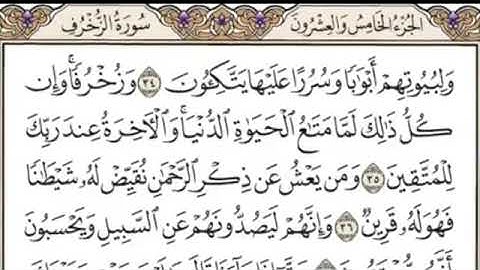 سُورَةُ الزُّخْرُفِ
الجُزْءُ الخَامِسُ وَالعِشْرُونَ
وَلِبُيُوتِهِمْ أَبْوَٰبًا وَسُرُرًا عَلَيْهَا يَتَّكِـُٔونَ ٣٤ وَزُخْرُفًا ۚ وَإِن
كُلُّ ذَٰلِكَ لَمَّا مَتَٰعُ الْحَيَوٰةِ الدُّنْيَا ۚ وَالْـَٔاخِرَةُ عِندَ رَبِّكَ
لِلْمُتَّقِينَ ٣٥ وَمَن يَعْشُ عَن ذِكْرِ الرَّحْمَٰنِ نُقَيِّضْ لَهُۥ شَيْطَٰنًا
فَهُوَ لَهُۥ قَرِينٌ ٣٦ وَإِنَّهُمْ لَيَصُدُّونَهُمْ عَنِ السَّبِيلِ وَيَحْسَبُونَ